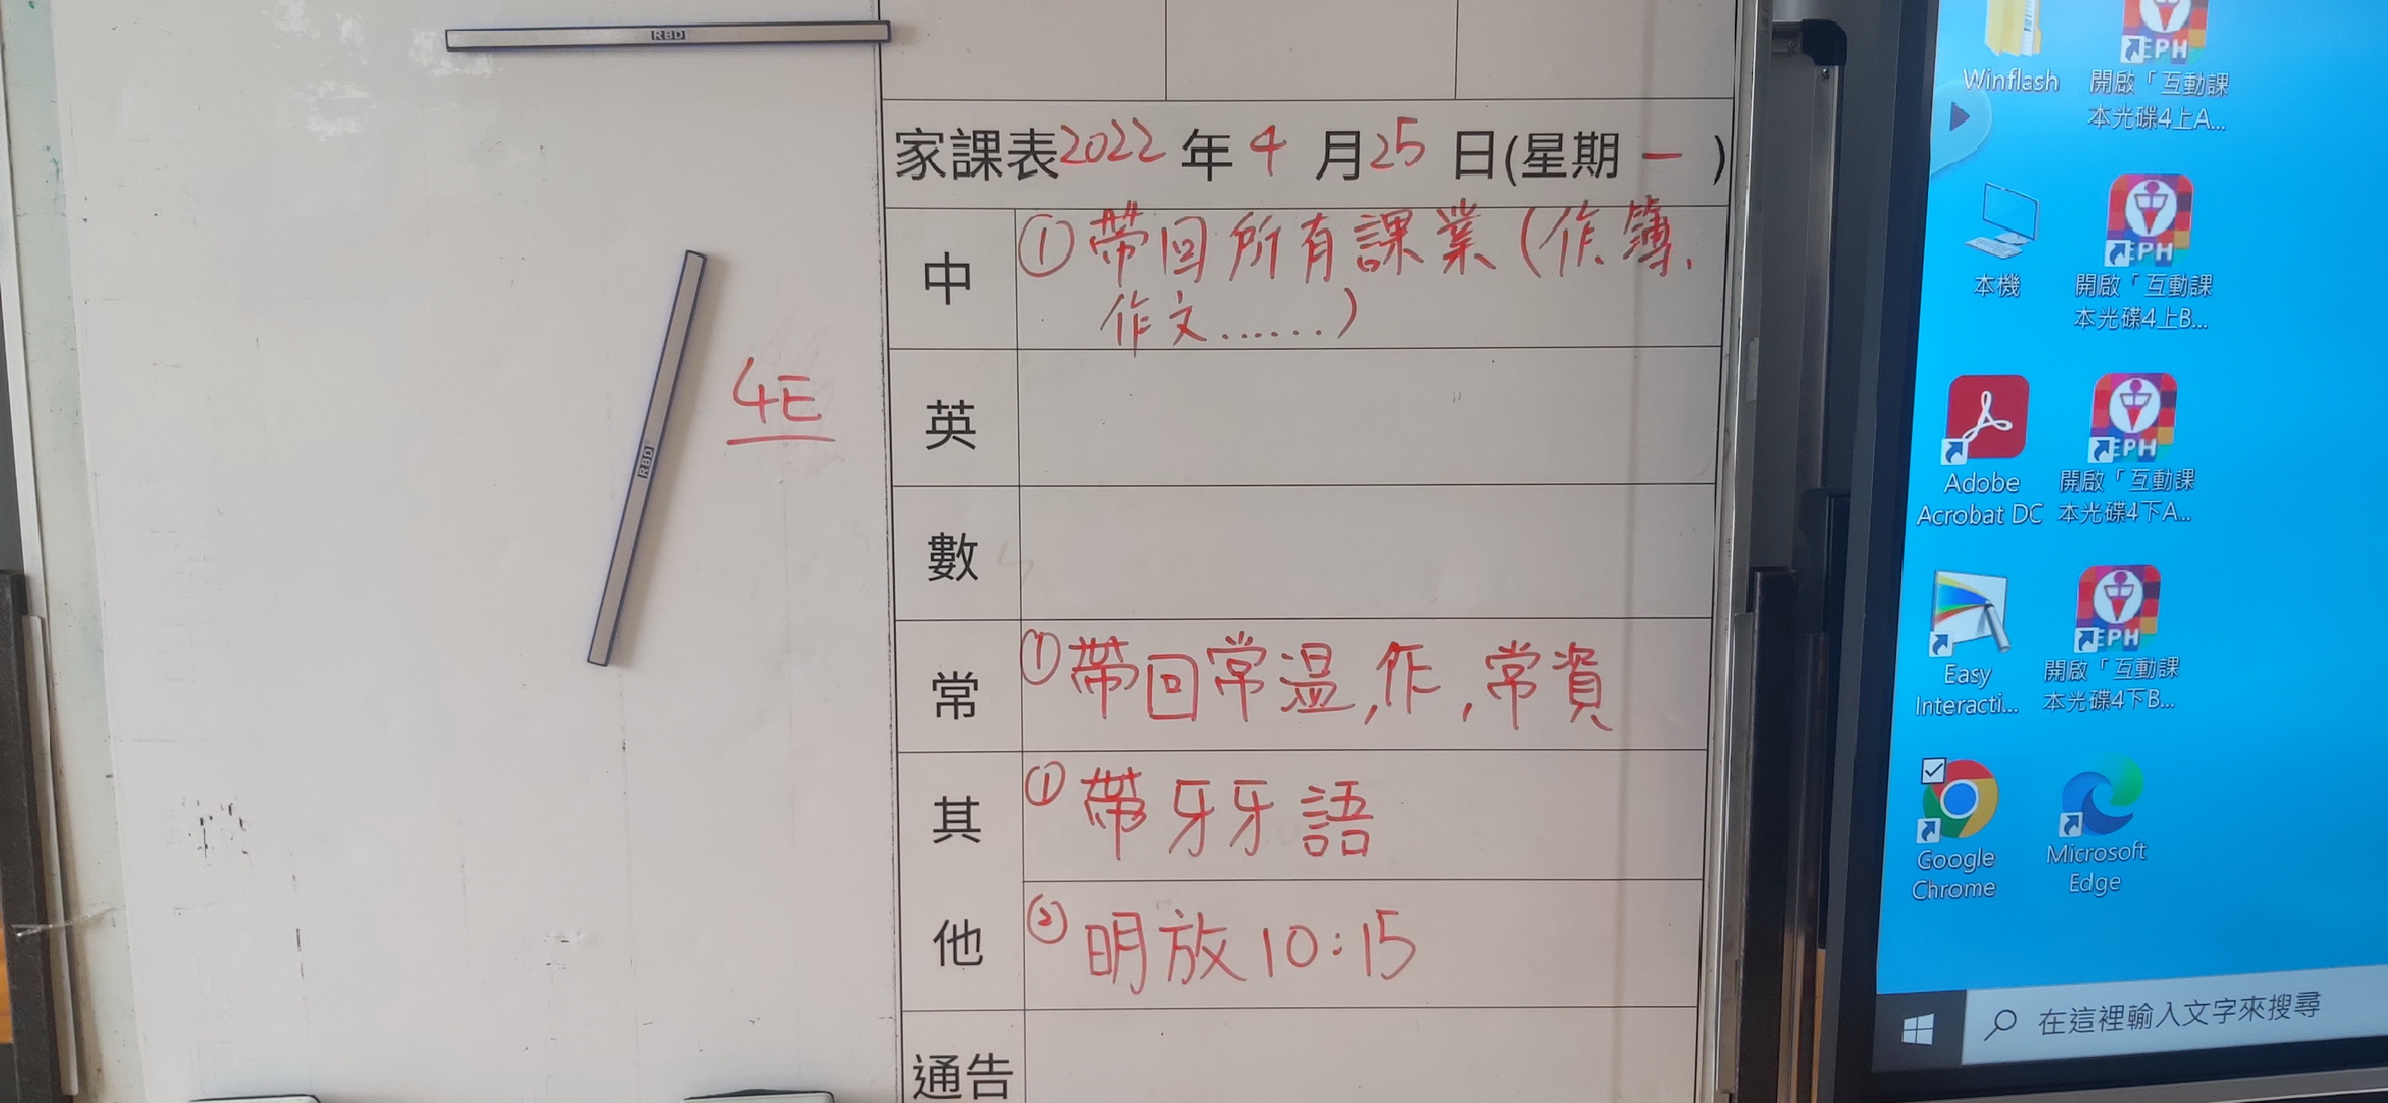 RBD
家課表2022年4月25日(星期一)
中
①帶回所有課業(作、簿、
作文......)
4E
英
RBD
數
常
①帶回常溫,作,常資
其他
①帶牙牙語
②明放10:15
通告
Winflash
EPH
開啟「互動課
本光碟4上A...
本機
EPH
開啟「互動課
本光碟4上B...
Adobe
Acrobat DC
EPH
開啟「互動課
本光碟4下A...
Easy
Interacti...
EPH
開啟「互動課
本光碟4下B...
Google
Chrome
Microsoft
Edge
在這裡輸入文字來搜尋